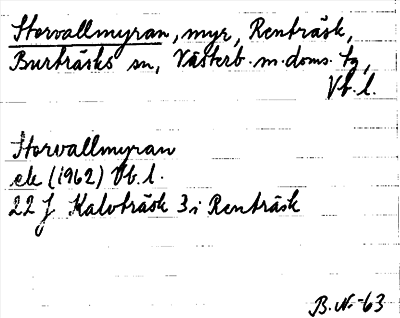 Storvallmyran, myr, Renträsk,
Burträsks sn, Västerb. m. doms. tg,
Vb. l.
Storvallmyran
ek (1962) Vb. l.
22 J Kalvträsk 3 i Renträsk
B. N-63